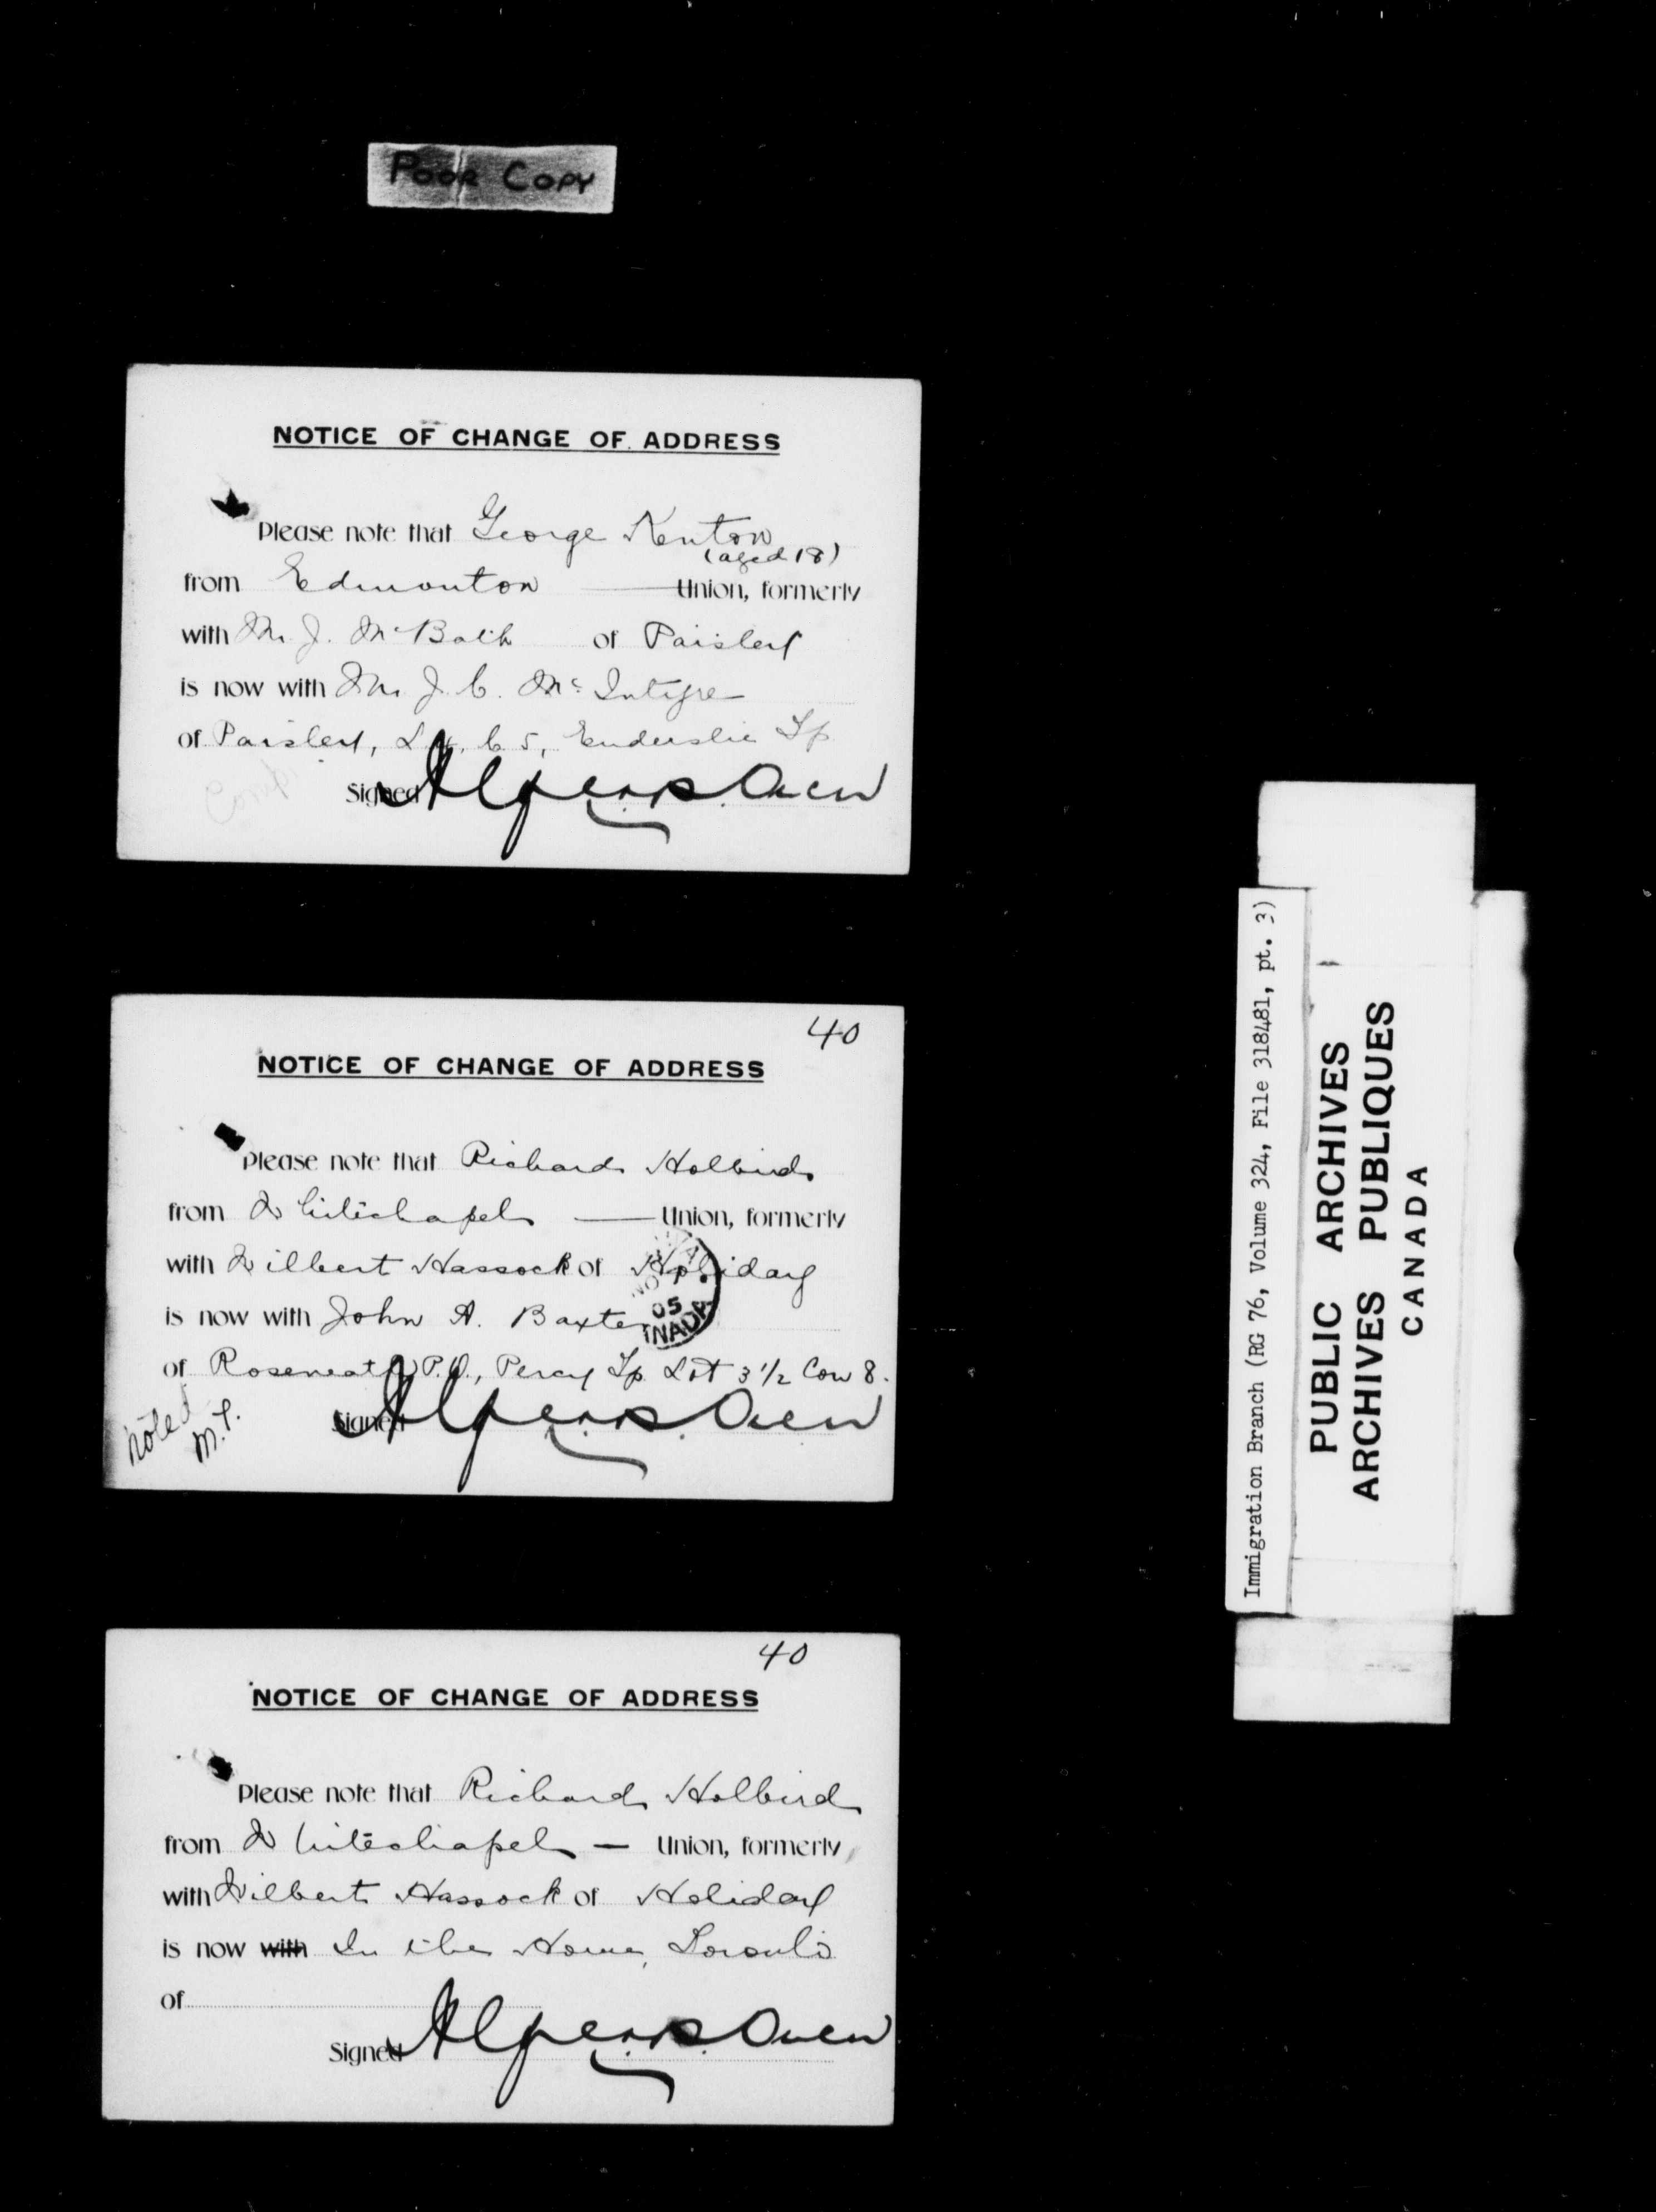 POOR COPY
NOTICE OF CHANGE OF ADDRESS
Please note that George Kenton
(aged 18)
from Edmonton Union, formerly
with Mr. J. McBath of Paisley
is now with Mr J. C. McIntyre
of Paisley, L 4, C 5, Enderslie Tp
Signed Alfred B. Owen
40
NOTICE OF CHANGE OF ADDRESS
Please note that Richard Holbird
from Whitechapel Union, formerly
with Wilbert Hassock of Holiday
is now with John A. Baxter
05
of Roseneath P.O., Percy Tp Lot 3 1/2 Con 8.
Noted
M.P.
Signed Alfred B. Owen
40
NOTICE OF CHANGE OF ADDRESS
Please note that Richard Holbird
from Whitechapel — Union, formerly
with Wilbert Hassock of Holiday
is now with In the Home, Toronto
of
Signed Alfred B. Owen
Immigration Branch (RG 76, Volume 324, File 318481, pt. 3)
PUBLIC ARCHIVES
ARCHIVES PUBLIQUES
CANADA